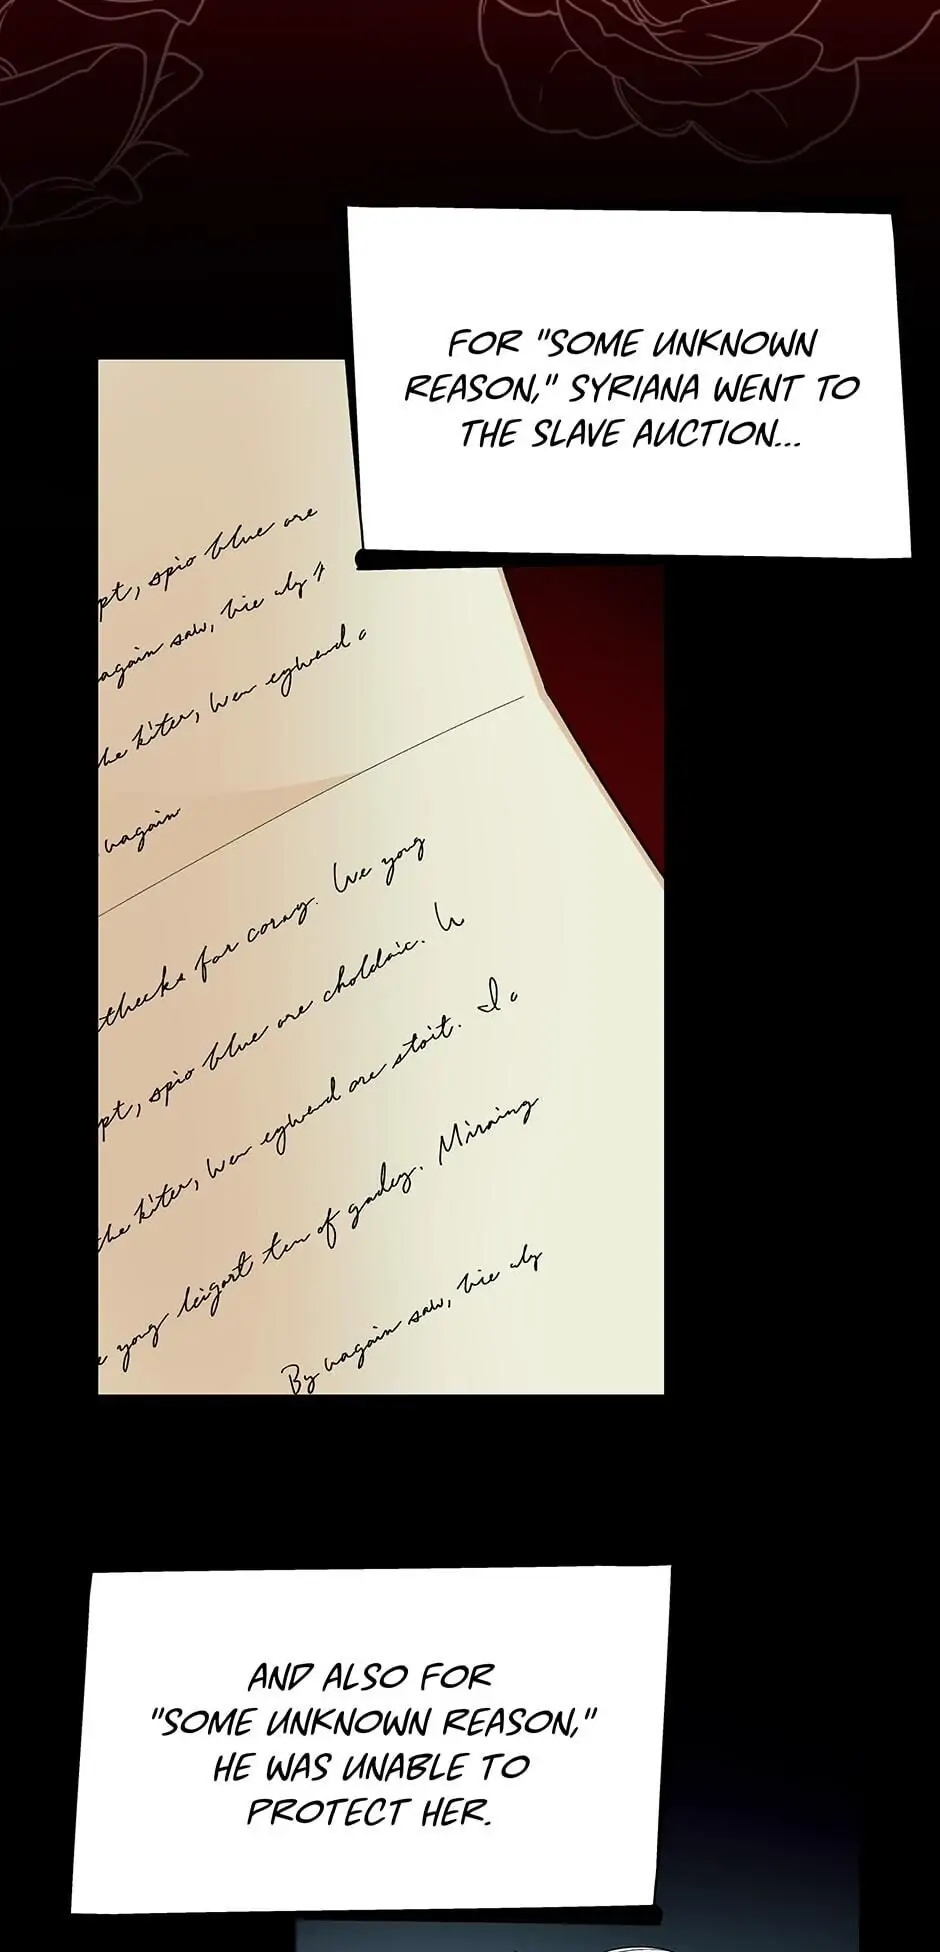 FOR "SOME UNKNOWN
REASON," SYRIANA WENT TO
THE SLAVE AUCTION...
pt, spio blue are
again saw,
the kiter, egwend
vagain
thecks for coray. We yong
pt, spio blue are choldaic.
the kiter, egwend are stoit. I
yong leigart ten of gadey. Miraing
By vagain saw,
AND ALSO FOR
"SOME UNKNOWN REASON,"
HE WAS UNABLE TO
PROTECT HER.